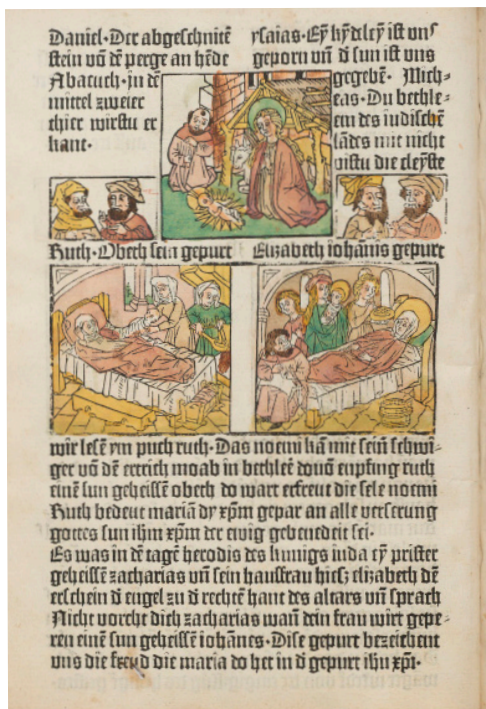 Daniel· Der abgeschnitē
stein vō dē perge an hēde
Abacuch· in dē
mittel zweier
thier wirstu er
kant·
ysaias· Eȳ kȳdleȳ ist vnſ
geporn vn̄ d̄ sun ist vns
gegebē· Mich⸗
eas· Du bethle⸗
em des iudischē
lādes mit nicht
pistu die cleȳste
Ruth· Obeth sein gepurt
Elizabeth iohānis gepurt
wir lesē ym puch ruth· Das noemi kā mit seīn schwi⸗
ger vō dē ertrich moab in bethleē douō enpfing ruth
einē sun geheissē obeth do wart erfreut die sele noemi
Ruth bedeut mariā dy xp̄m gepar an alle verserung
gottes sun ihm xp̄m der ewig gebenedeit sei·
Es was in dē tagē herodis des kunigs iuda eȳ prister
geheissē zacharias vn̄ sein hausfrau hiesz elizabeth dē
erschein d̄ engel zu d̄ rechtē hant des altars vn̄ sprach
Nicht vorcht dich zacharias wan̄ dein frau wirt gepe⸗
ren einē sun geheissē iohānes· Dise gepurt bezeichent
vns die freyd die maria do het in d̄ gepurt ihū xp̄i·